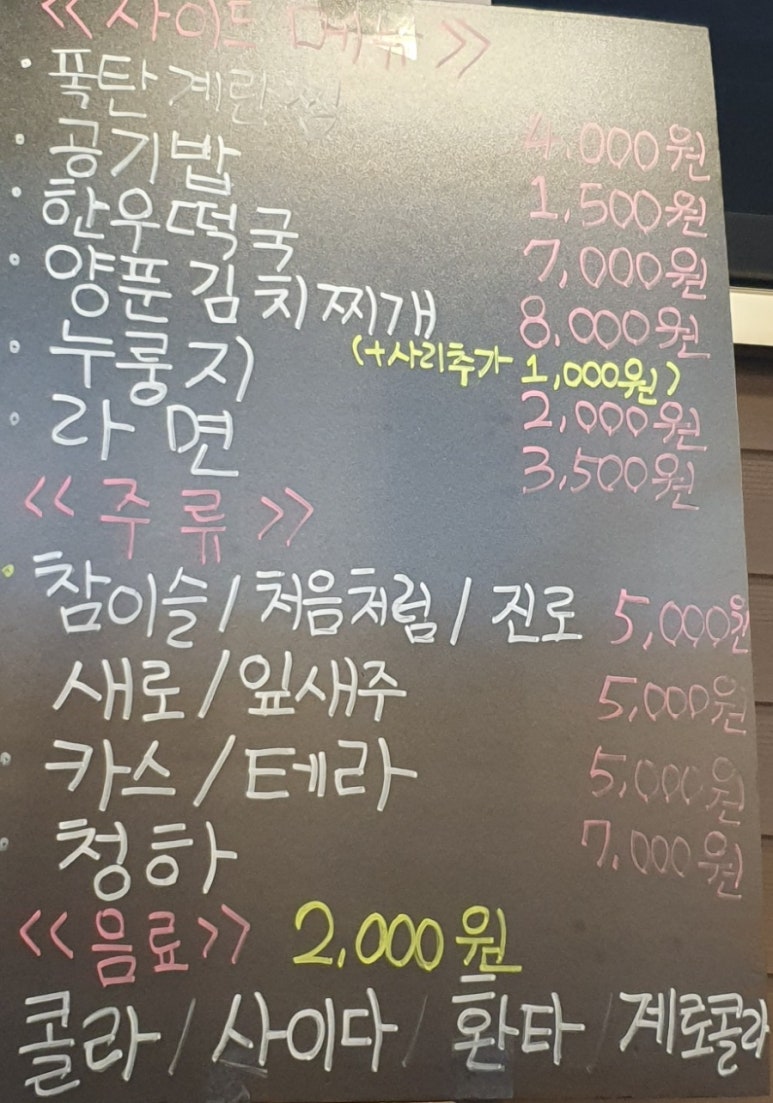 <<사이드 메뉴>>
· 폭탄 계란찜 4,000원
· 공기밥 1,500원
· 한우떡국 7,000원
· 양푼김치찌개 8,000원
(+사리추가 1,000원)
· 누룽지 2,000원
· 라면 3,500원
<<주류>>
· 참이슬/처음처럼/진로 5,000원
새로/잎새주 5,000원
· 카스/테라 5,000원
· 청하 7,000원
<<음료>> 2,000원
콜라/사이다/환타/제로콜라